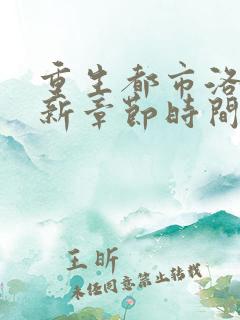 重生都市洛
新章節時間
王昕
未经同意禁止转载